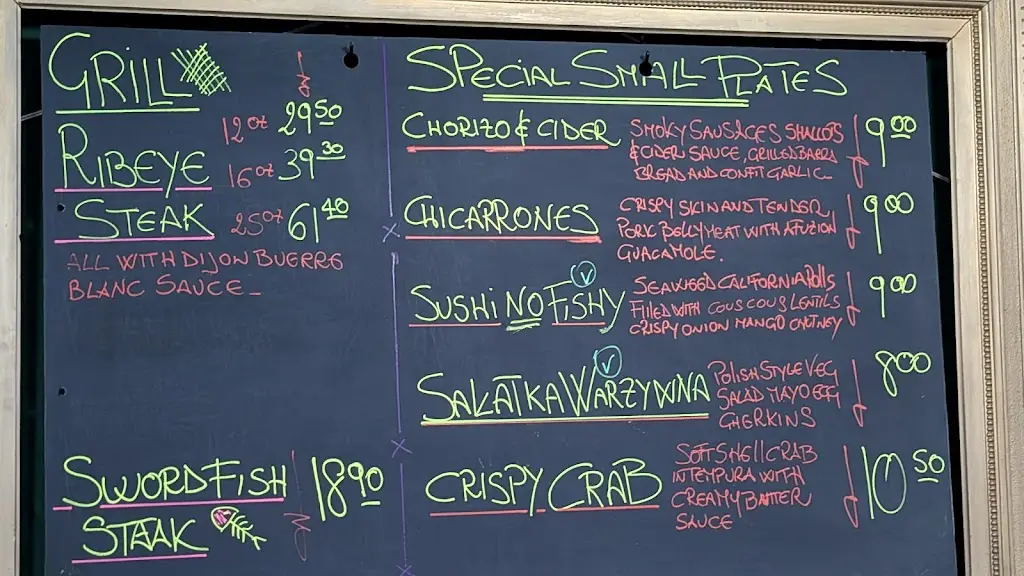 GRILL
12oz 29 50
RIBEYE 16oz 39 30
STEAK 25oz 61 40
ALL WITH DIJON BUERRE
BLANC SAUCE_
SWORDFISH 18 90
STAAK
SPECIAL SMALL PLATES
CHORIZO & CIDER
SMOKY SAUSAGES SHALLOTS
& CIDER SAUCE, GRILLED BARRA
BREAD AND CONFIT GARLIC_
9 00
CHICARRONES
CRISPY SKIN AND TENDER
PORK BELLY MEAT WITH A FUZION
GUACAMOLE.
9 00
SUSHI NO FISHY V
SEAWEED CALIFORNIA ROLLS
FILLED WITH COUS COUS LENTILS
CRISPY ONION MANGO CHUTNEY
9 00
SAŁATKA WARZYWNA V
POLISH STYLE VEG
SALAD MAYO EGG
GHERKINS
8 00
CRISPY CRAB
SOFT SHELL CRAB
IN TEMPURA WITH
CREAMY BATTER
SAUCE
10 50